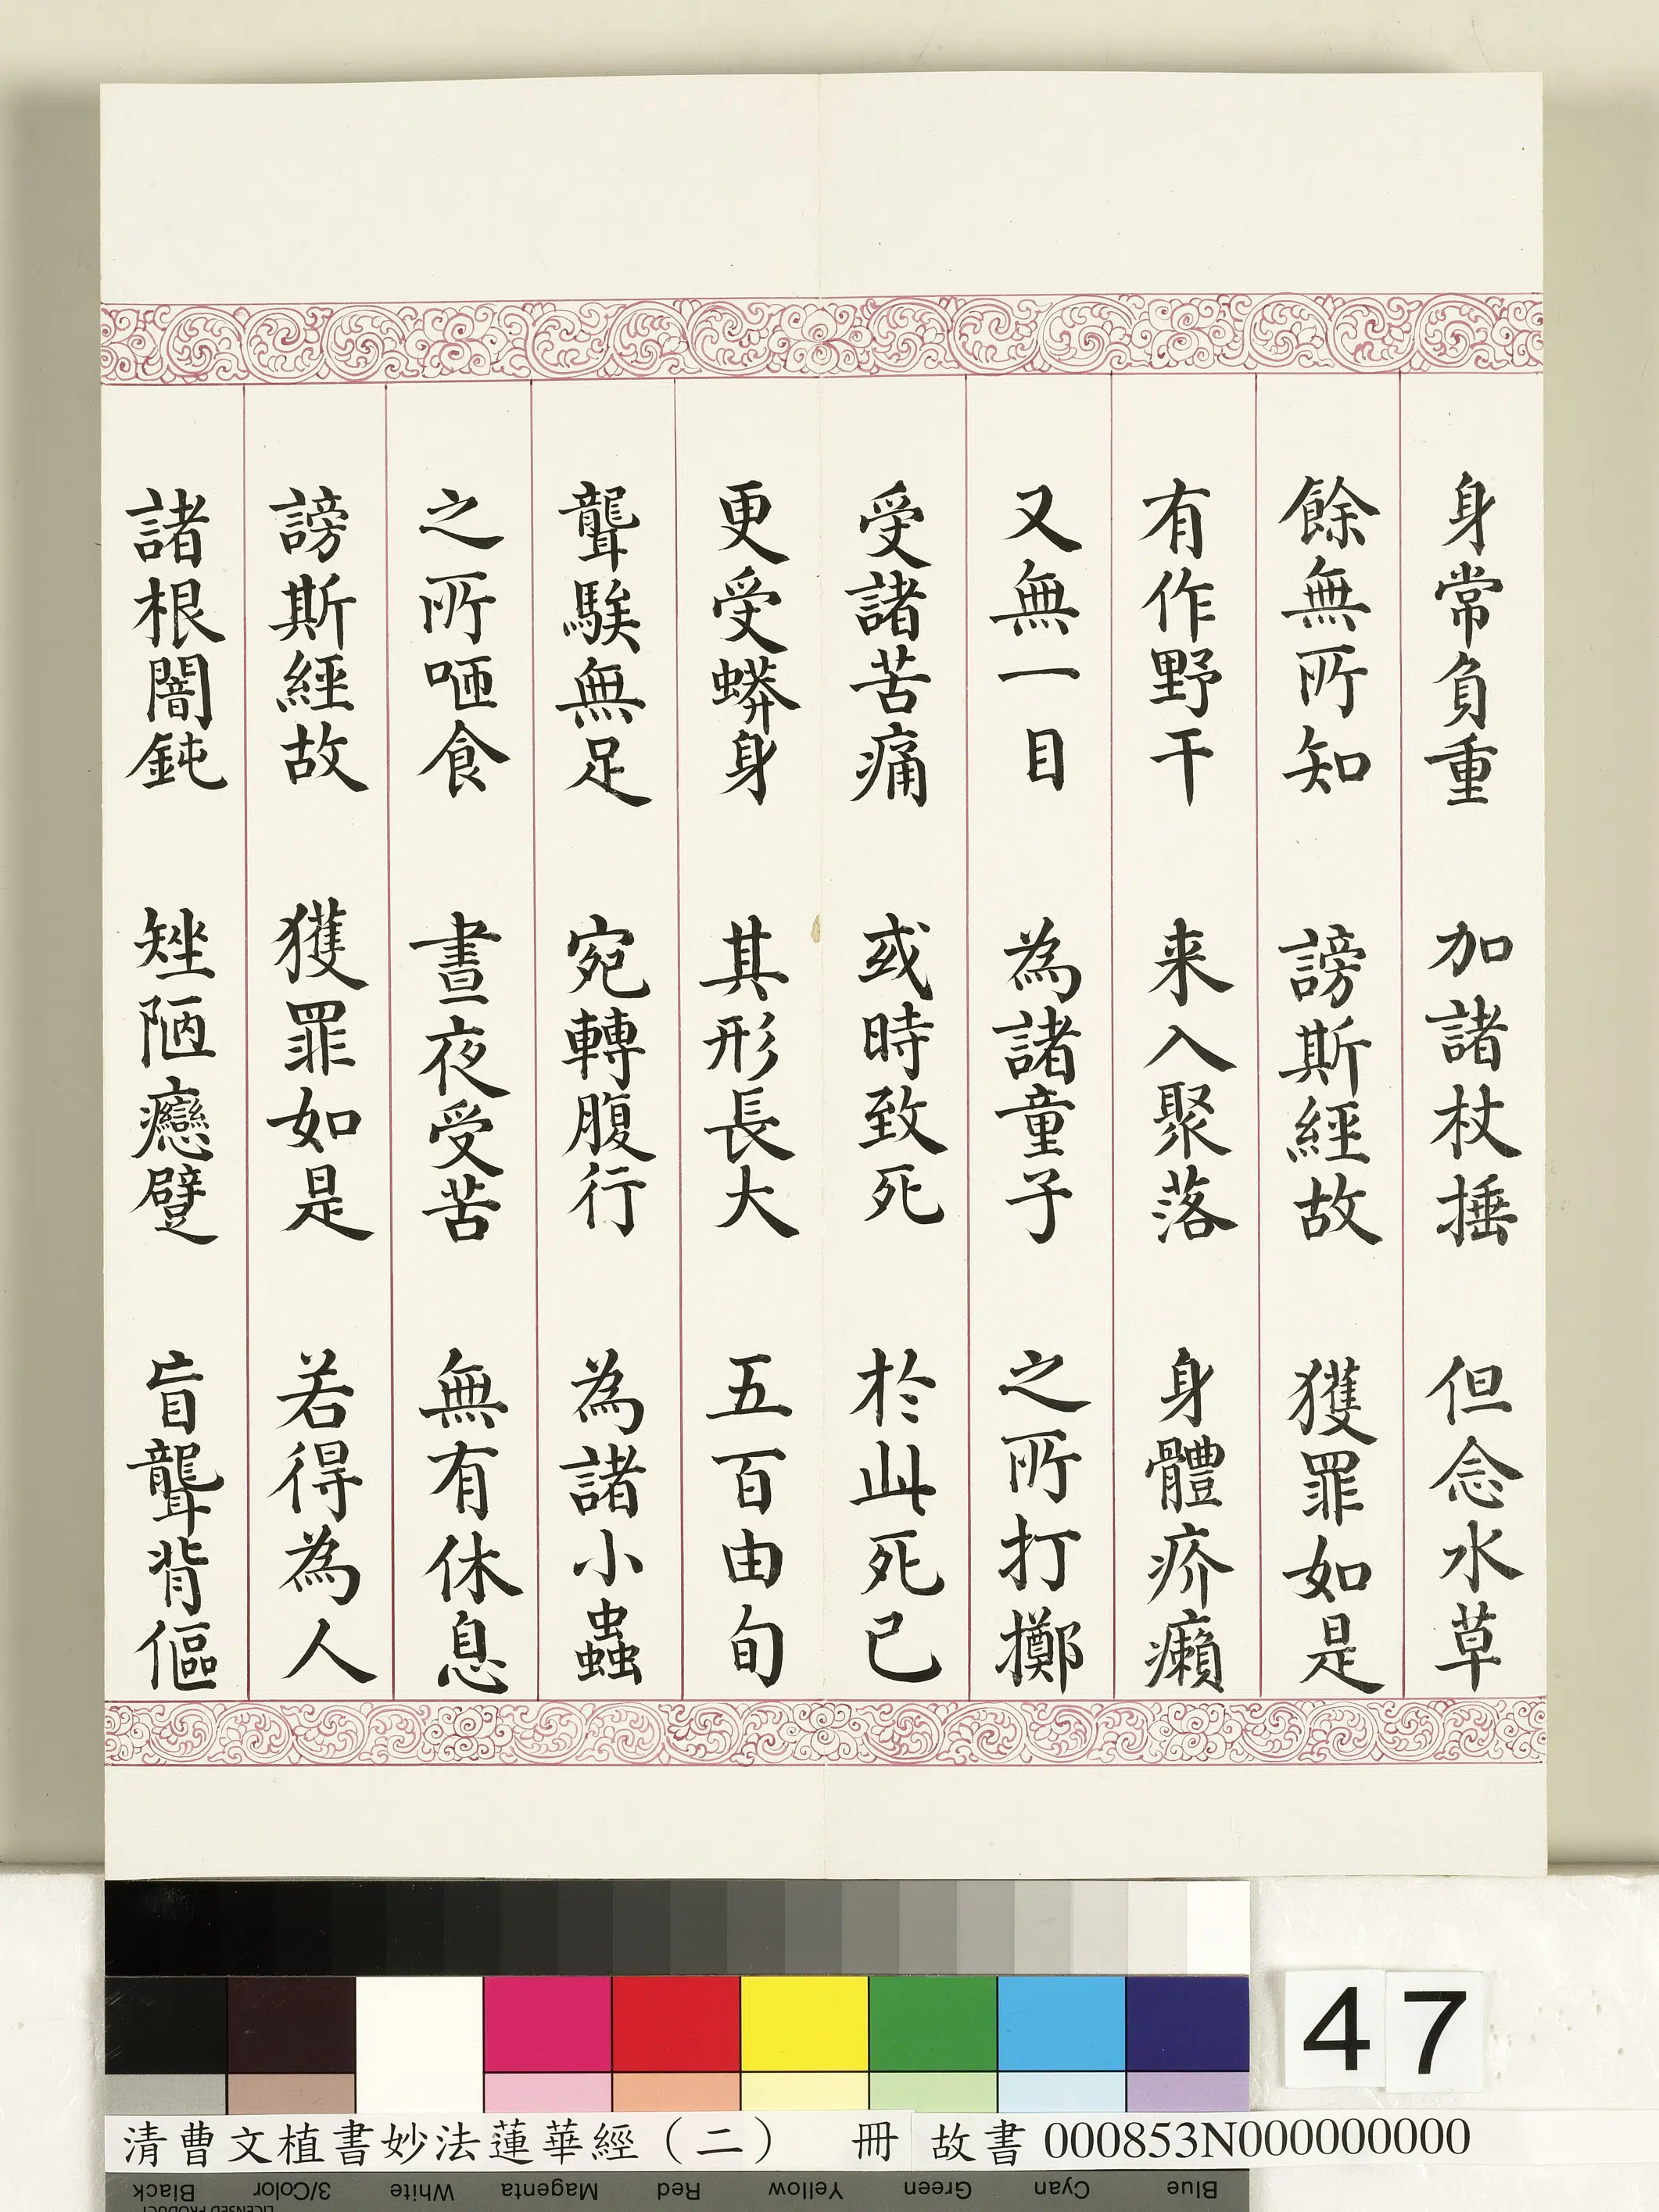 身常負重 加諸杖捶 但念水草
餘無所知 謗斯經故 獲罪如是
有作野干 来入聚落 身體疥癩
又無一目 為諸童子 之所打擲
受諸苦痛 或時致死 於此死已
更受蟒身 其形長大 五百由旬
聾騃無足 宛轉腹行 為諸小蟲
之所咂食 晝夜受苦 無有休息
謗斯經故 獲罪如是 若得為人
諸根闇鈍 矬陋癵躄 盲聾背傴
47
清曹文植書妙法蓮華經（二） 冊 故書 000853N000000000
Black 3/Color White Magenta Red Yellow Green Cyan Blue
LICENSED PRODUCT